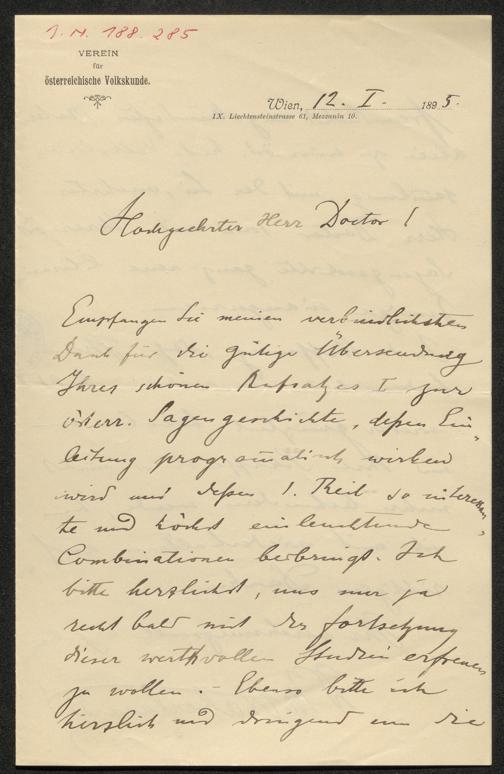 I.N. 188.285
VEREIN
für
österreichische Volkskunde.
Wien, 12. I. 1895.
IX. Liechtensteinstrasse 61, Mezzanin 10.
Hochgeehrter Herr Doctor!
Empfangen Sie meinen verbindlichsten
Dank für die gütige Übersendung
Ihres schönen Aufsatzes I zur
österr. Sagengeschichte, deßen Ein-
leitung programatisch wirken
wird und deßen 1. Theil so interessan-
te und höchst einleuchtende
Combinationen beibringt. Ich
bitte herzlichst, uns nur ja
recht bald mit der Fortsetzung
dieser werthvollen Studien erfreuen
zu wollen. - Ebenso bitte ich
herzlich und dringend um die